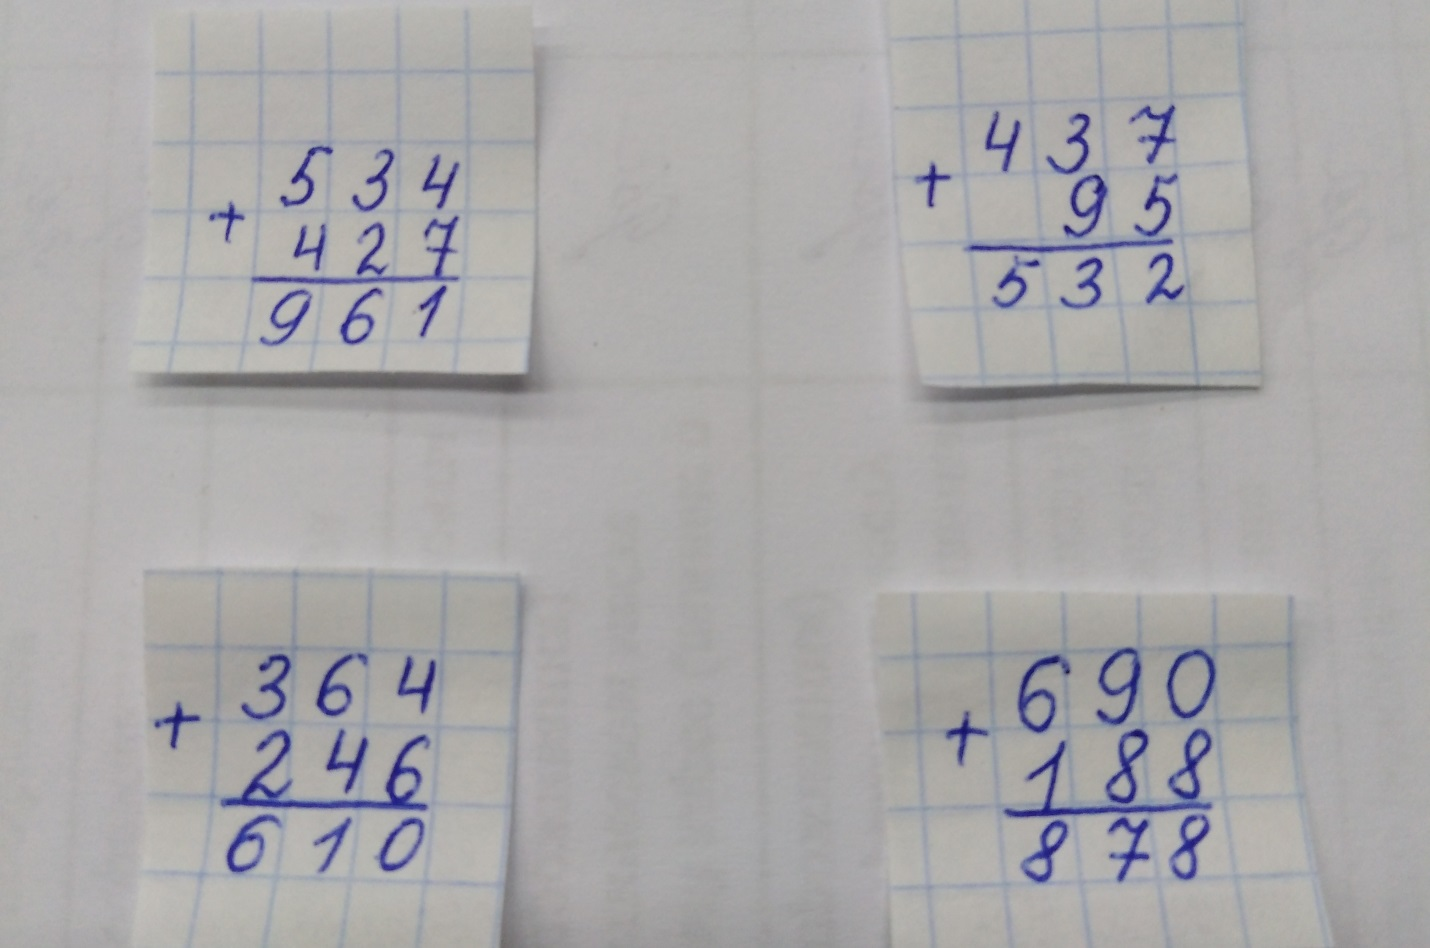 534
+
427
961
437
+
95
532
364
+
246
610
690
+
188
878